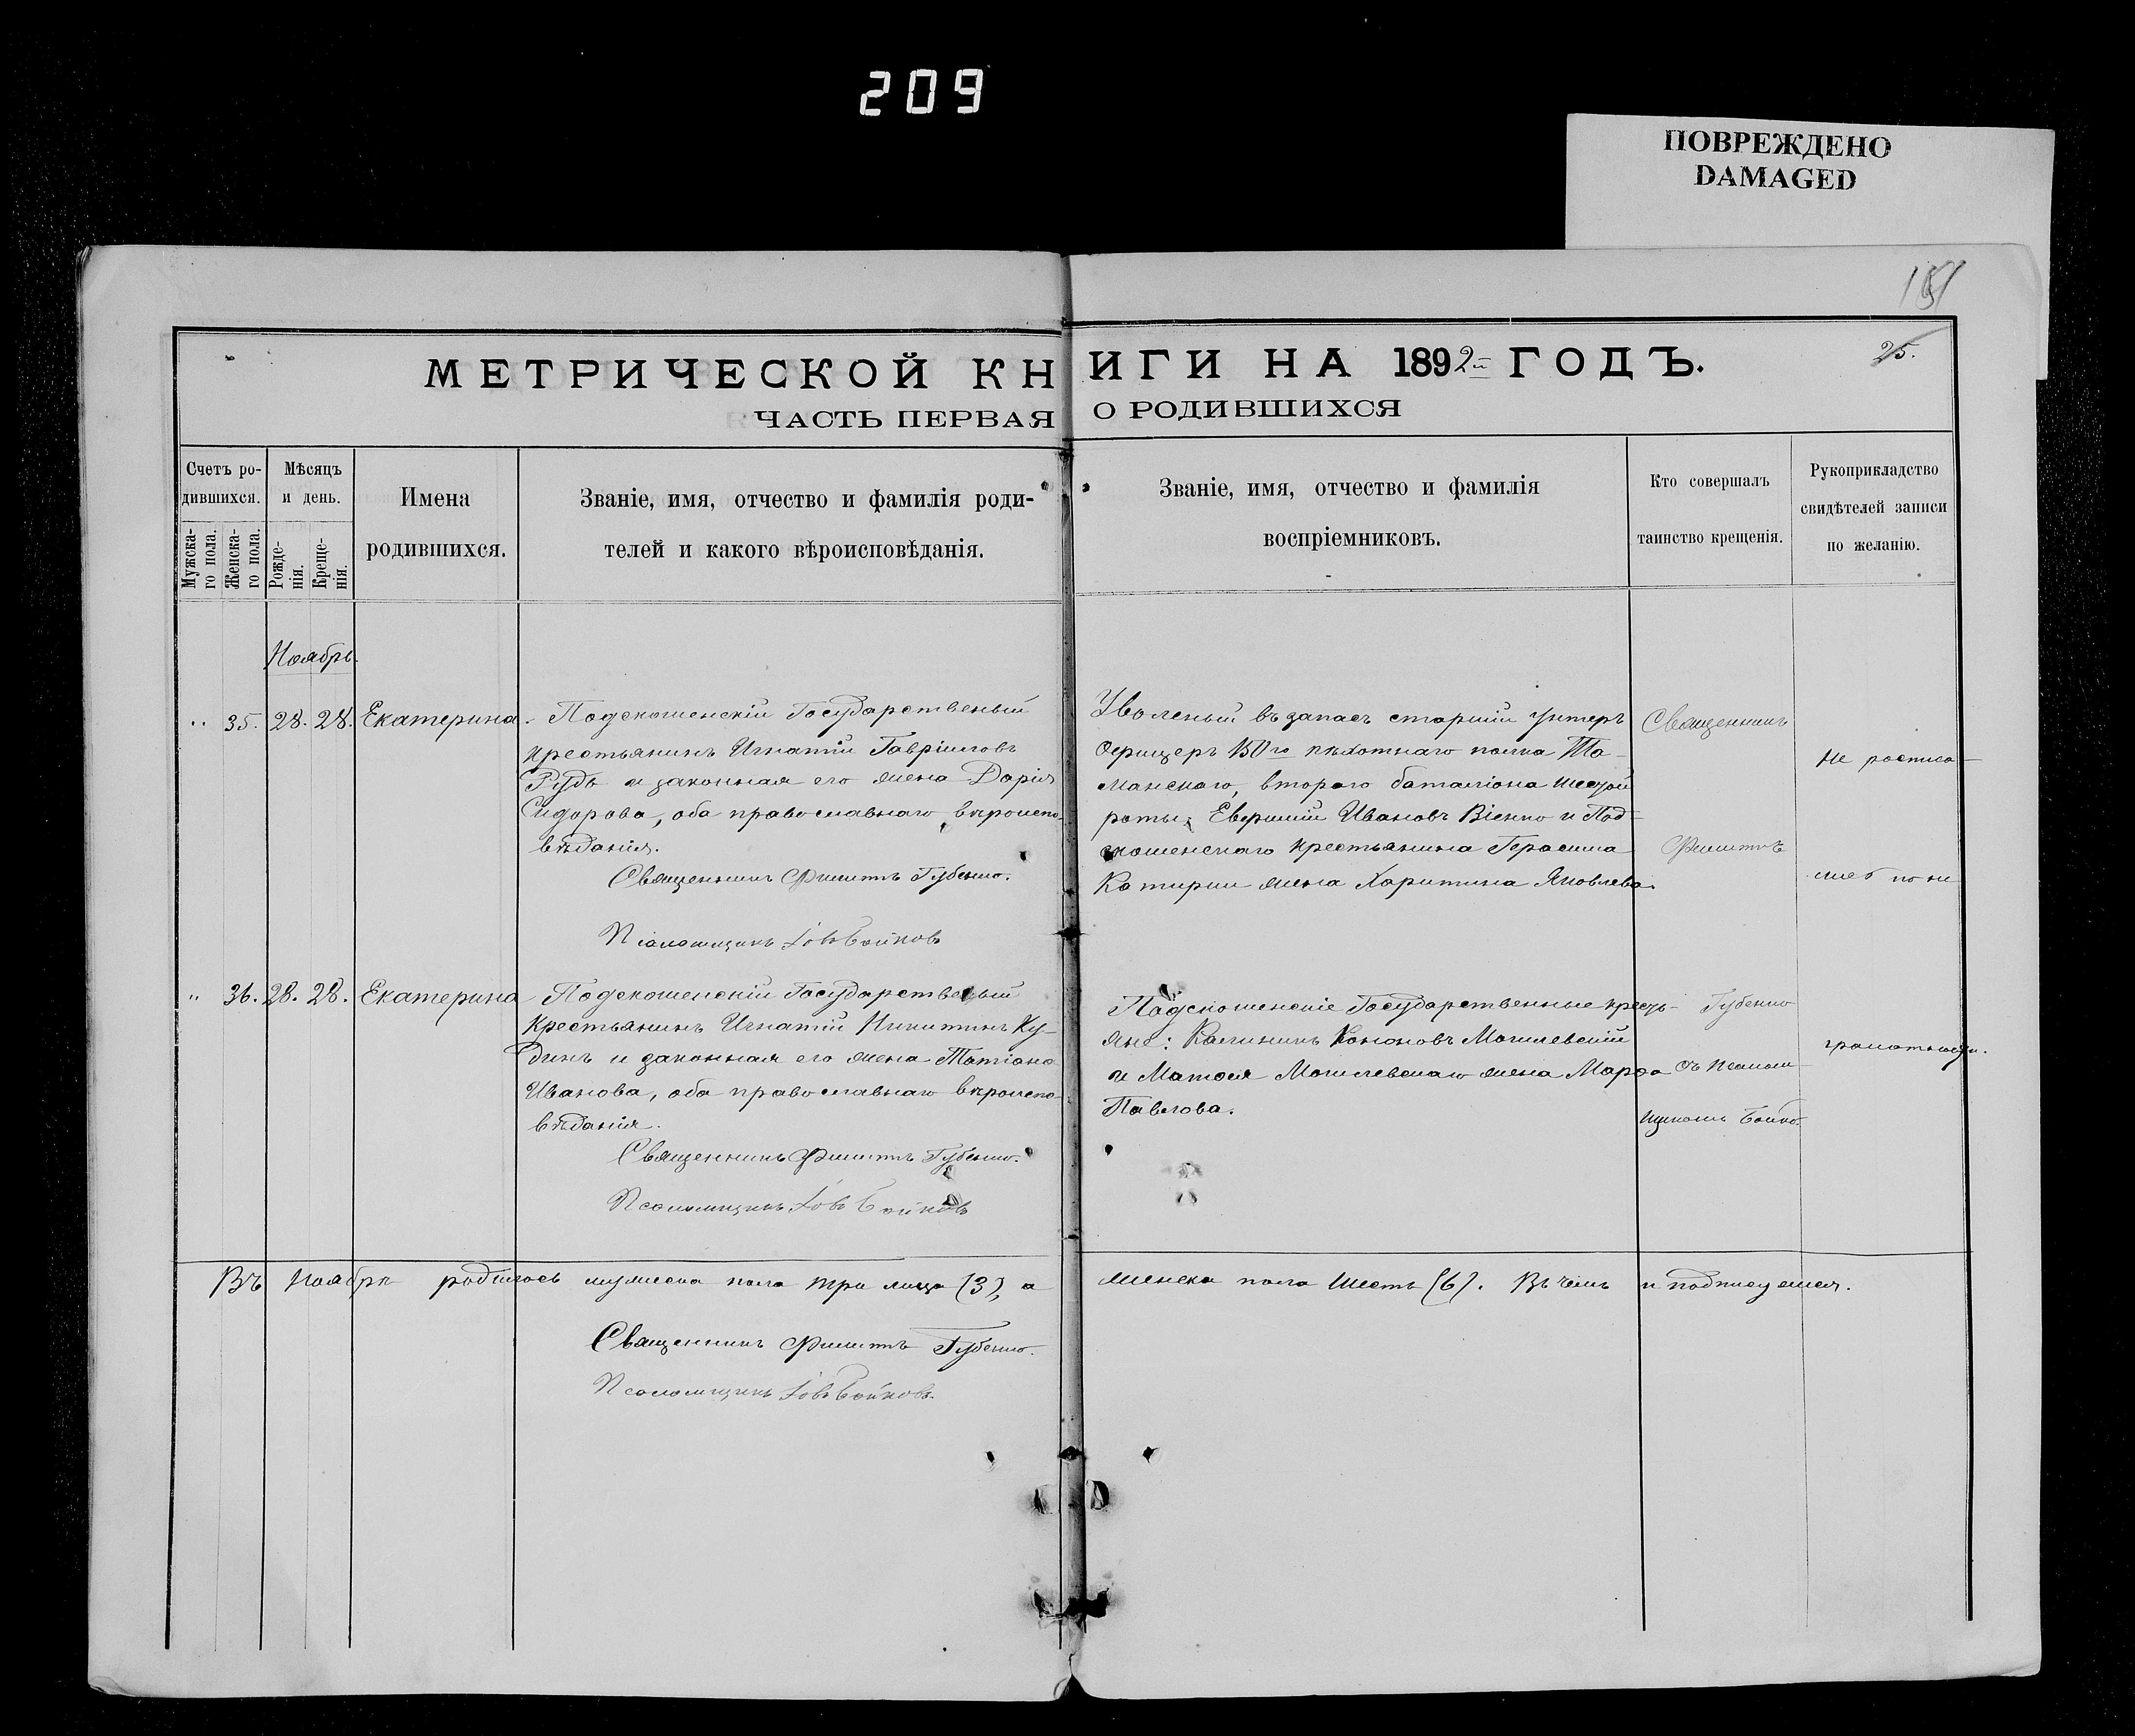 209
ПОВРЕЖДЕНО
DAMAGED
151
25.
МЕТРИЧЕСКОЙ КНИГИ НА 1892й ГОДЪ.
ЧАСТЬ ПЕРВАЯ О РОДИВШИХСЯ
Счетъ ро-
дившихся.
Мужска-
го пола.
Женска-
го пола.
Мѣсяцъ
и день.
Рожде-
нія.
Креще-
нія.
Имена
родившихся.
Званіе, имя, отчество и фамилія роди-
телей и какого вѣроисповѣданія.
Званіе, имя, отчество и фамилія
воспріемниковъ.
Кто совершалъ
таинство крещенія.
Рукоприкладство
свидѣтелей записи
по желанію.
Ноябрь.
" 35. 28. 28. Екатерина.
Подокошенскій Государственый
крестьянинъ Игнатій Гавріиловъ
Рудь и законная его жена Дарія
Сидорова, оба православнаго вѣроиспо-
вѣданія.
Священникъ Филиппъ Губенко.
Псаломщикъ Іовъ Бойковъ
Уволеный въ запасъ старшій унтеръ
офицеръ 150го пѣхотнаго полка Та-
манскаго, второго баталіона шестой
роты, Ивановъ Віенко и Под-
окошенскаго крестьянина Герасима
жена Харитина Яковлева.
" 36. 28. 28. Екатерина
Подокошенскій Государственый
крестьянинъ Игнатій Никитинъ Ку-
динъ и законная его жена Татіана
Иванова, оба православнаго вѣроиспо-
вѣданія.
Священникъ Филиппъ Губенко.
Псаломщикъ Іовъ Бойковъ
Подокошенскіе Государственные кресть-
яне: Калиникъ Кононовъ Могилевскій
и Матѳея Могилевскаго жена Марѳа
Павлова.
Священникъ
Филиппъ
Губенко
съ Псалом-
щикомъ Бойко.
Не росписа-
лись по не
грамотности.
Въ Ноябрѣ родилось мужеска пола три лица (3), а женска пола шесть (6). Въ чемъ и подписуемся.
Священникъ Филиппъ Губенко.
Псаломщикъ Іовъ Бойковъ.